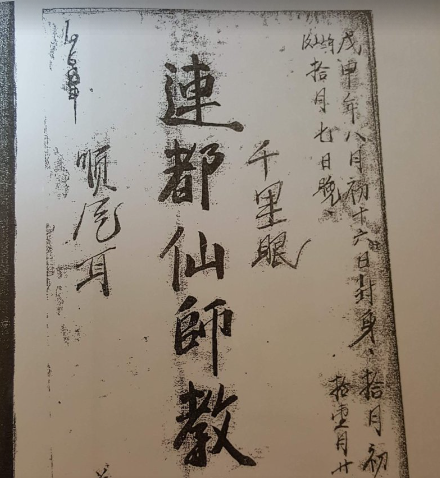 戊申年八月初十六日封身、拾月初
拾月七日晚、
拾壹月廿
千里眼
連都仙師教
順風耳